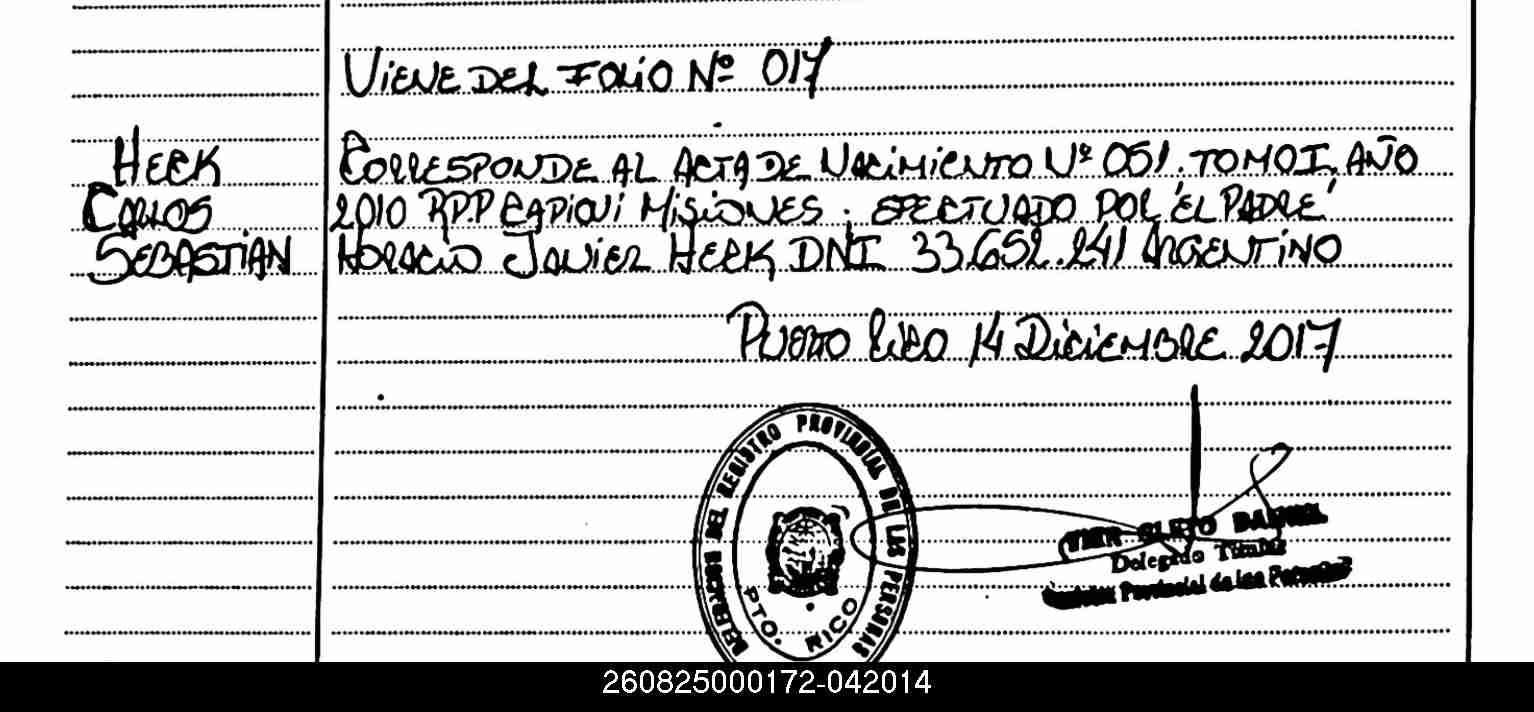 VIENE DEL FOLIO Nº 017
HECK
CARLOS
SEBASTIAN
CORRESPONDE AL ACTA DE NACIMIENTO Nº 051. TOMO I. AÑO
2010 R.P.P CAPIOVI MISIONES. EFECTUADO POR "EL PADRE"
HORACIO JAVIER HECK DNI 33.652.241 ARGENTINO
PUERTO RICO 14 DICIEMBRE 2017
DELEGACION DEL REGISTRO PROVINCIAL DE LAS PERSONAS
PTO. RICO
CLETO DANIEL
Delegado Titular
Provincial de las Personas
260825000172-042014